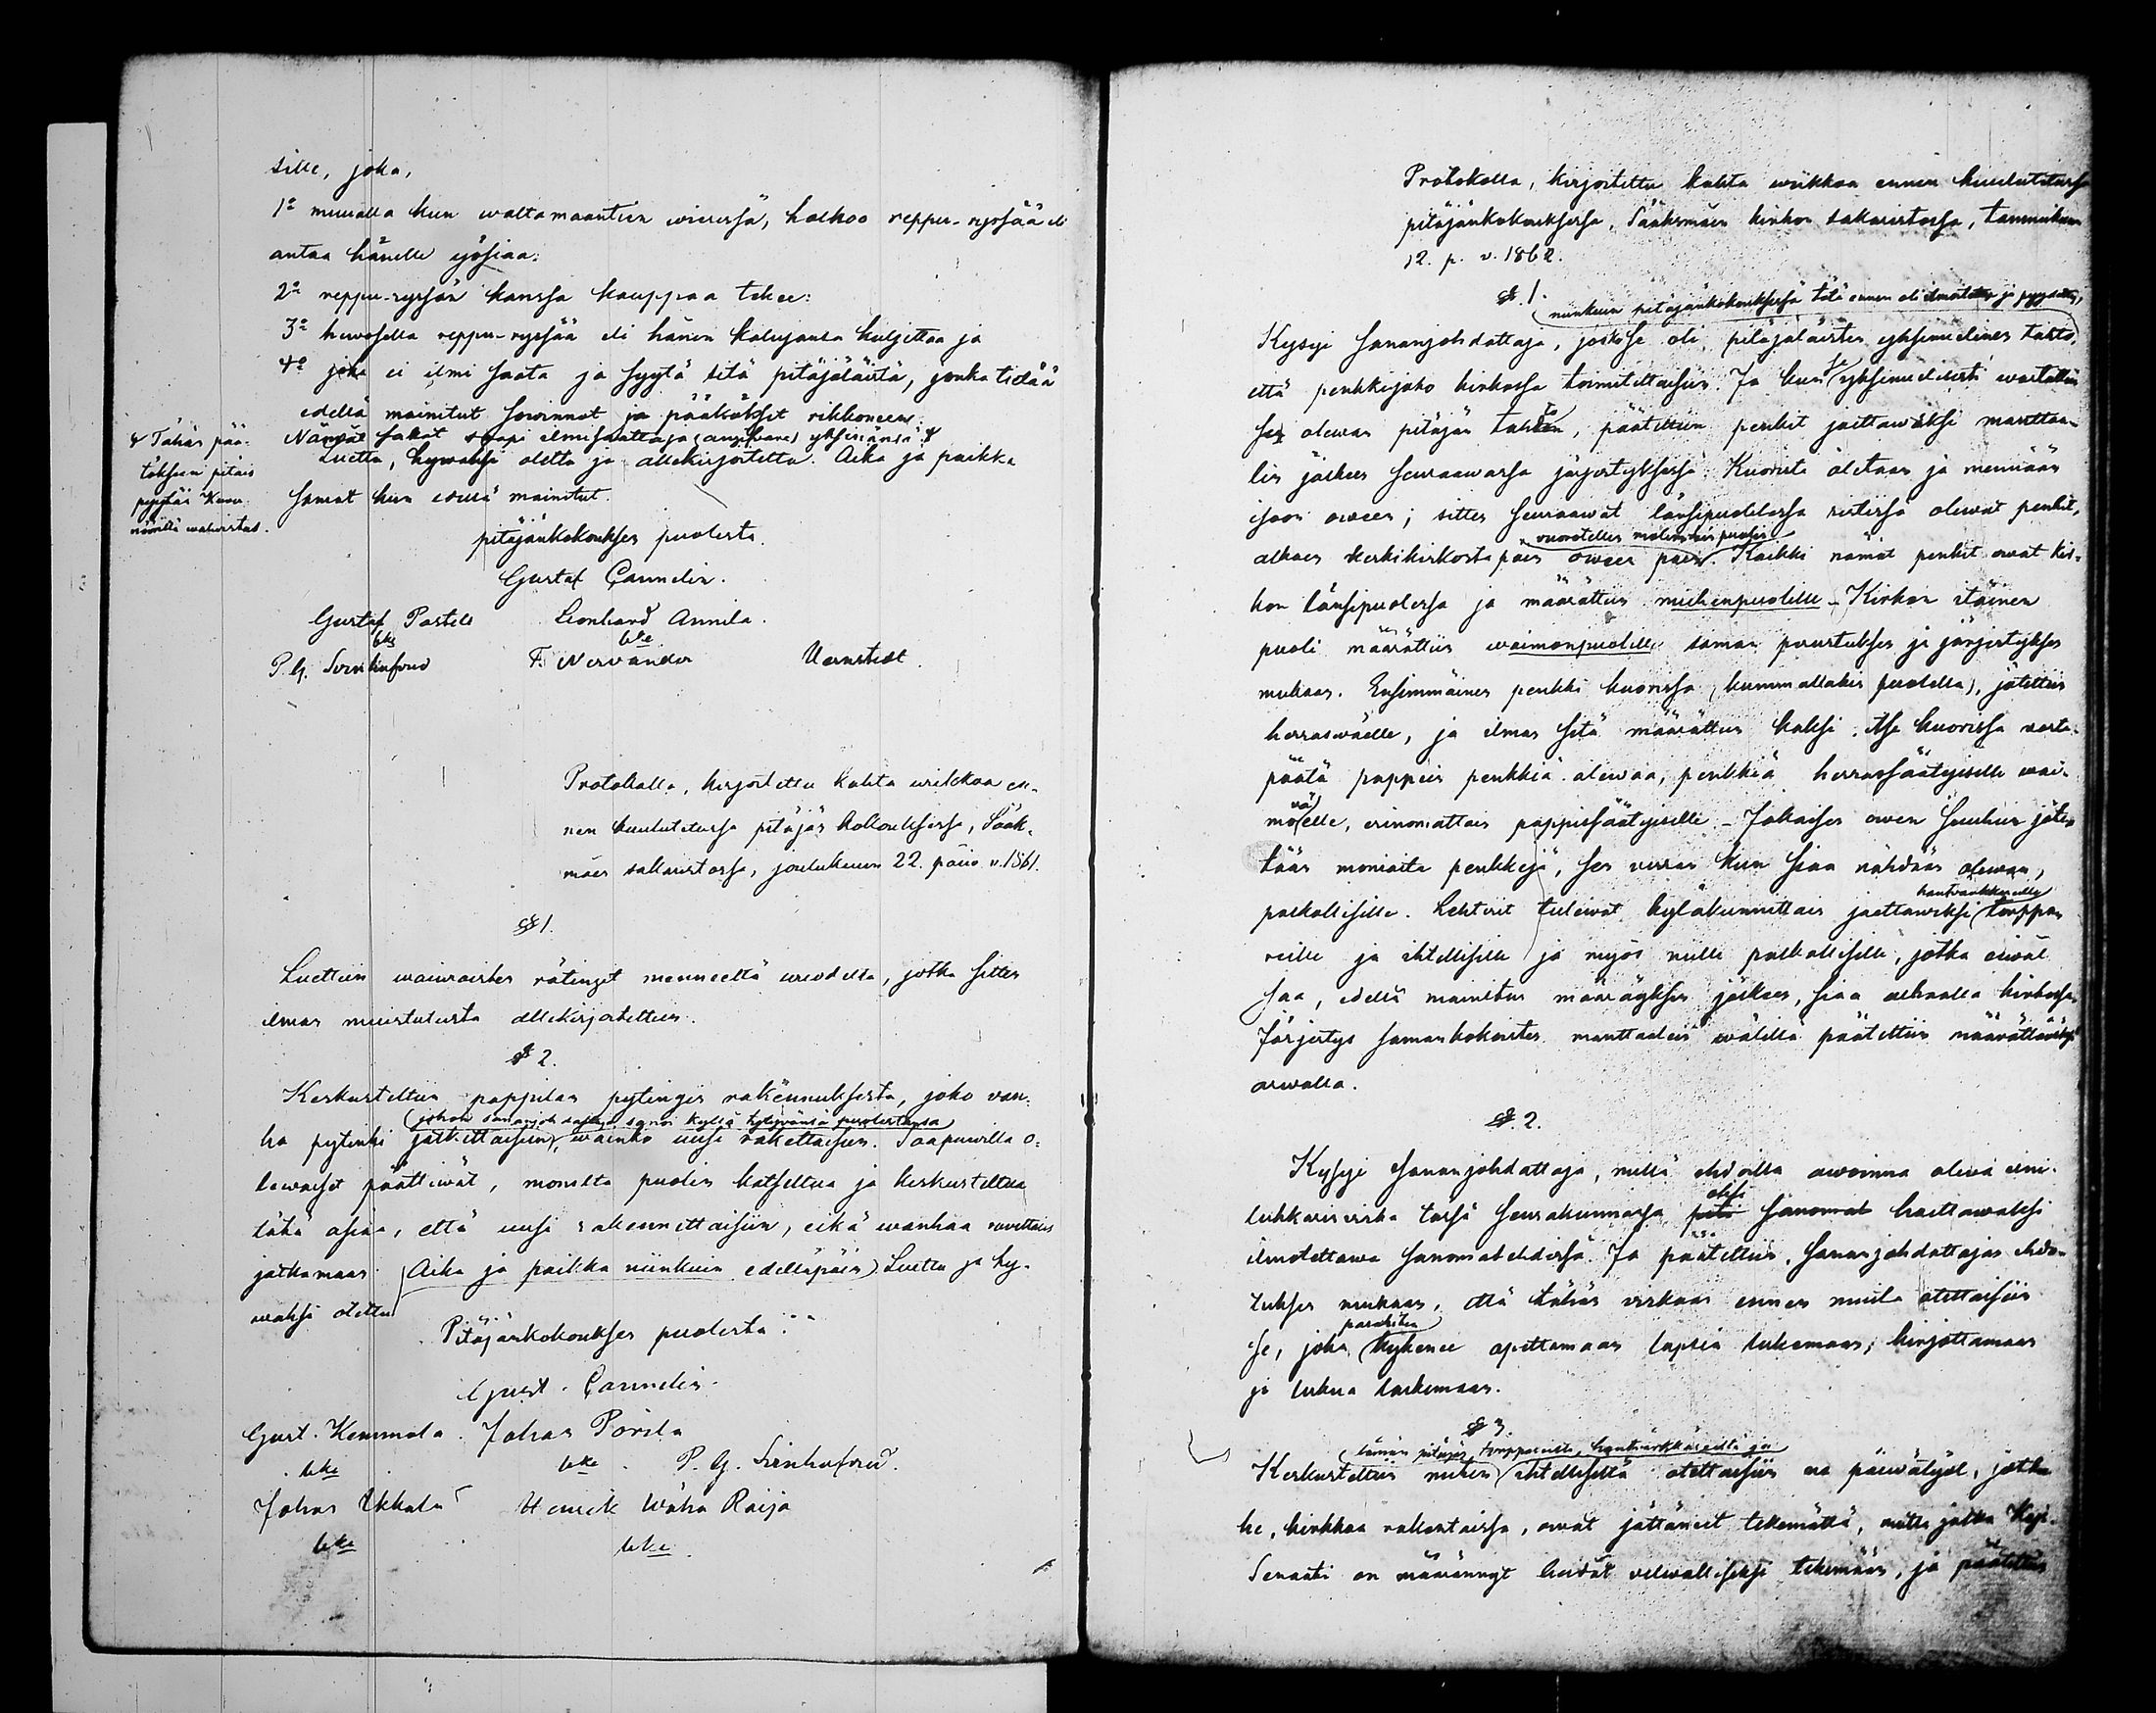 sille, joka,
1o muualla kun waltamaantien wieressä, holhoo reppu-ryssää eli
antaa hänelle yösiaa:
2o reppu-ryssän kanssa kauppaa tekee:
3o hewosella reppu-ryssää eli hänen kalujansa kuljettaa ja
4o joka ei ilmi saata ja syytä sitä pitäjäläistä, jonka tietää
edellä mainitut sowinnot ja päätökset rikkoneen.
Nämät sakot saapi ilmisaattaja (angifvare) yksinänsä.
Luettu, hywäksi otettu ja allekirjoitettu. Aika ja paikka
samat kun edellä mainitut.
Tähän pää-
töksen pitäis
pyytää Kuver-
nööriltä wahvistus.
pitäjänkokouksen puolesta.
Gustaf Cannelin.
Gustaf Pastell Leonhard Annila.
P. G. Svinhufvud F. Nervander Uernstedt.
Protokolla, kirjoitettu kahta wiikkoa en-
nen kuulutetussa pitäjän kokouksessa, Sääk-
mäen sakaristossa, joulukuun 22. päiv. v. 1861.
§ 1.
Luettiin waiwaisten rätingit menneeltä wuodelta, jotka sitten
ilman muistutusta allekirjoitettiin.
§ 2.
Keskusteltiin pappilan pytingin rakennuksesta, joko van-
(johon sananjohdattaja sanoi kyllä tytyvänsä puolestansa)
ha pytinki jatkettaisiin, wainko uusi rakettaisiin. Saapuwilla o-
lewaiset päättiwät, monelta puolen katseltua ja keskusteltua
tätä asiaa, että uusi rakennettaisiin, eikä wanhaa ruvettais
jatkamaan. (Aika ja paikka niinkuin edelläpäin) Luettu ja hy-
wäksi otettu
Pitäjänkokouksen puolesta:
Gust. Cannelin.
Gust. Kemmola. Johan Pörilä
P. G. Svinhufvud.
Johan Ukkola Henrik Wäha Raija
Protokolla, kirjoitettu kahta wiikkoa ennen kuulutetussa
pitäjänkokouksessa, Sääksmäen kirkon sakaristossa, tammikuun
12. p. v. 1862.
§ 1.
niinkuin pitäjänkokouksessa tätä ennen oli ilmoitettu ja pyydetty,
Kysyi sananjohdattaja, joskose oli pitäjäläisten yksimielinen tahto,
että penkkijako kirkossa toimitettaisiin. Ja kun se yksimielisesti wastattiin
olewan pitäjän tahto, päätettiin penkit jaettawaksi manttaa-
lin jälkeen seuraawassa järjestyksessä: Kuorista aletaan ja mennään
isoon oween; sitten seuraawat länsipuolelassa ristissä olewat penkit,
vuorotellen molemmin puolin
alkaen keskikirkosta päin oween päin. Kaikki nämät penkit owat kir-
kon länsipuolessa ja määrättiin miehenpuolelle. Kirkon itäinen
puoli määrättiin waimonpuolelle saman perustuksen ja järjestyksen
mukaan. Ensimmäinen penkki kuorissa (kummallakin puolella), jätettiin
herraswäelle, ja ilman sitä määrättiin kaksi itse kuorissa vasta-
päätä pappein penkkiä olewaa, penkkiä herrassäätyiselle wai-
moväelle, erinomattain pappissäätyiselle. Jokaisen owen suuhun jäte-
tään moniaita penkkejä, sen verran kun siaa nähdään olewan,
palkollisille. Lehterit tulewat kyläkunnittain jaettawiksi hantvärkkäreille torppa-
reille ja itsellisille ja myös niille palkollisille, jotka eiwät
saa, edellä mainitun määräyksen jälkeen, siaa alhaalla kirkossa.
Järjestys samankokoisten manttaalein wälillä päätettiin määrättäwäksi
arwalla.
§. 2.
Kysyi sananjohdattaja, millä ehdoilla awoinna olewa
lukkarinvirka tässä seurakunnassa olisi haettawaksi
ilmoitettawa sanomalehdissä. Ja päätettiin, sananjohdattajan ehdo-
tuksen mukaan, että tähän virkaan ennen muita otettaisiin
se, joka parahiten kykenee opettamaan lapsia lukemaan, kirjottamaan
ja lukua laskemaan.
§ 3.
tämän pitäjän torppareilta, hantwärkkäreiltä ja
Keskusteltiin miten itsellisiltä otettaisiin ne päiwätyöt, jotka
he, kirkkoa rakentaissa, owat jättäneet tekemättä, mutta jotka Keis.
Senaati on määrännyt heidät velwollisiksi tekemään, ja päätettiin